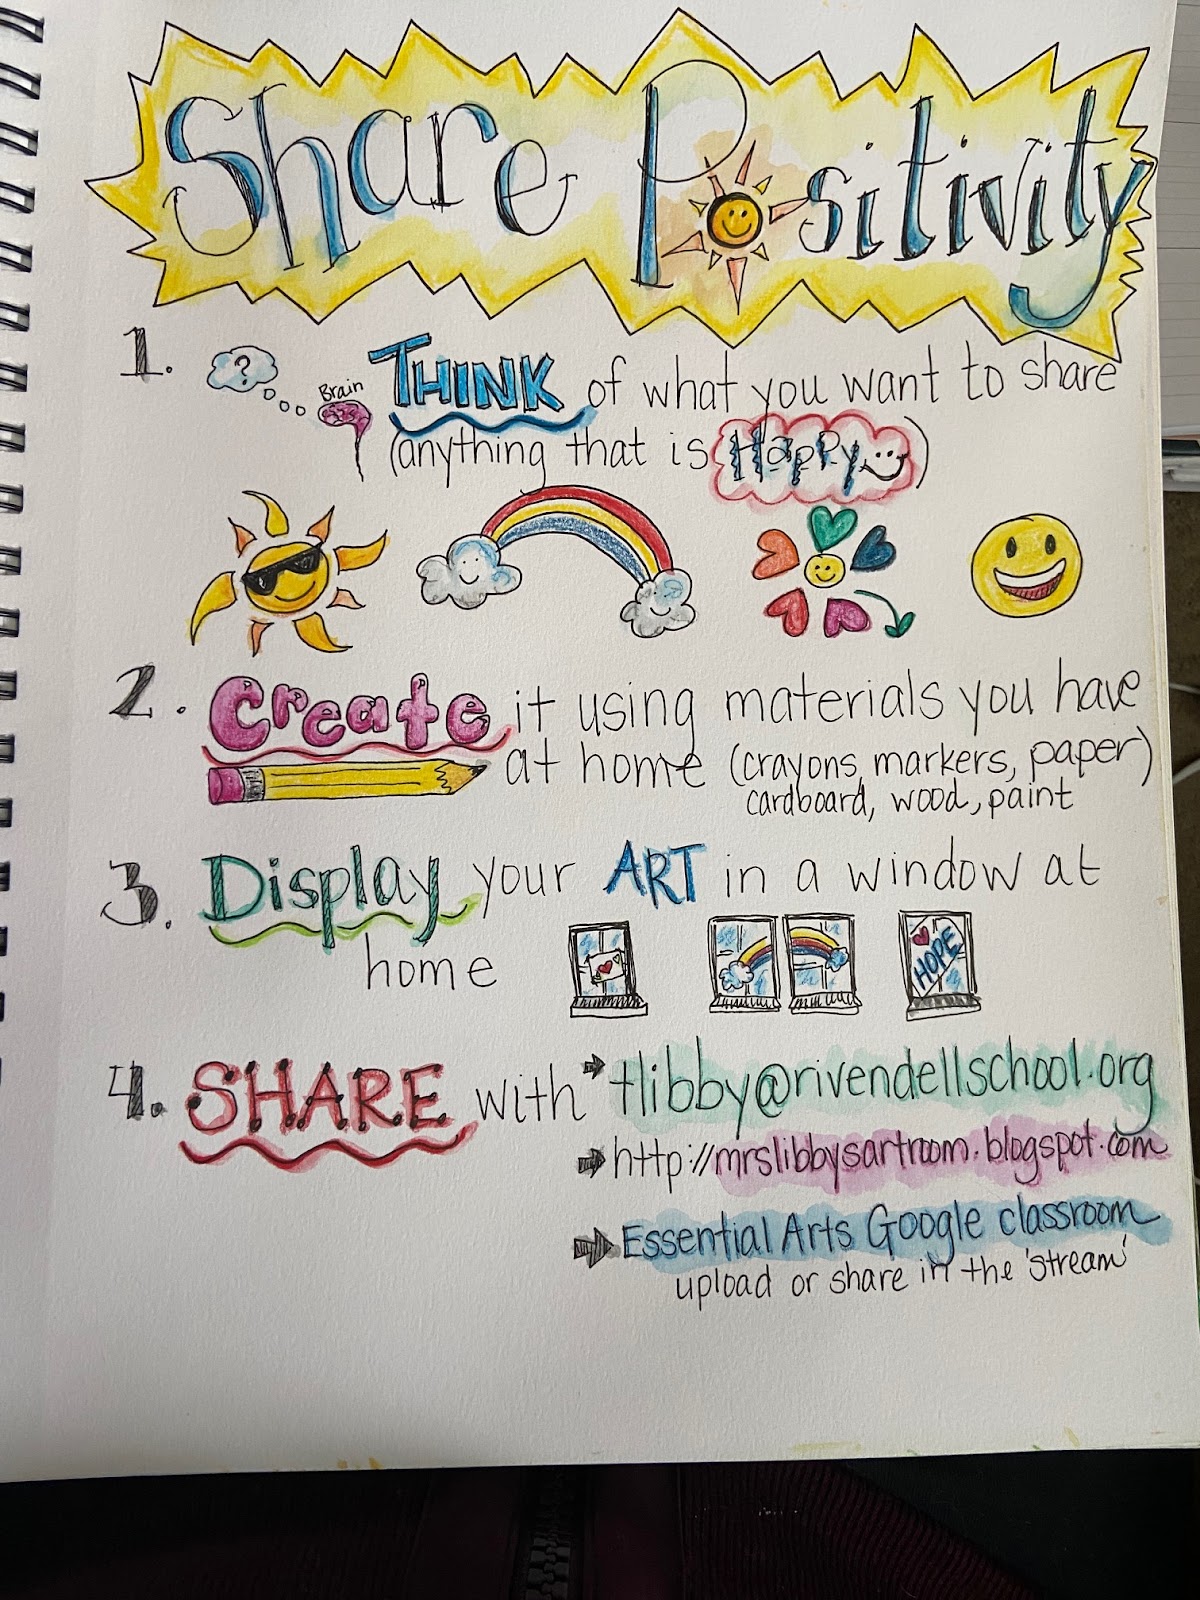 Share Positivity
1. ? Brain THINK of what you want to share
(anything that is Happy)
2. Create it using materials you have
at home (crayons, markers, paper)
cardboard, wood, paint
3. Display your ART in a window at
home
HOPE
4. SHARE with tlibby@rivendellschool.org
http://mrslibbysartroom.blogspot.com
Essential Arts Google classroom
upload or share in the 'stream'